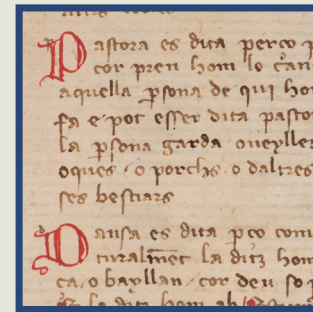 Pastora es dita perço p
cor pren hom lo can
aquella psona de qui hom
fa e pot esser dita pastor
la psona garda oueylles
oques o porchs o daltres
ses bestiars
Dansa es dita pço com
turalment la ditz hom
ça o bayllan cor deu so p
la ditz hom ab